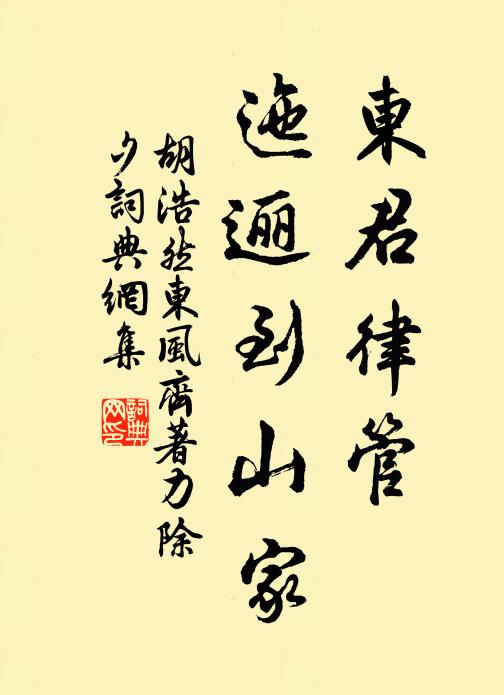 東君律管
迤邐到山家
胡浩然東風齊著力除
夕詞典網集
詞典
网印